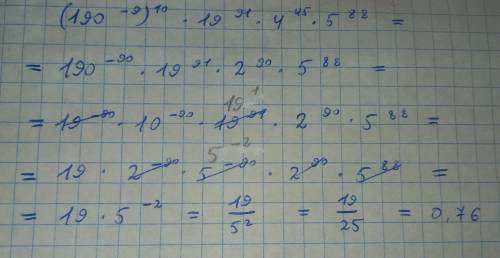 (190⁻⁹)¹⁰ · 19⁹¹ · 4⁴⁵ · 5⁸⁸ =
= 190⁻⁹⁰ · 19⁹¹ · 2⁹⁰ · 5⁸⁸ =
19¹
= 19⁻⁹⁰ · 10⁻⁹⁰ · 19⁹¹ · 2⁹⁰ · 5⁸⁸ =
5⁻²
= 19 · 2⁻⁹⁰ · 5⁻⁹⁰ · 2⁹⁰ · 5⁸⁸ =
= 19 · 5⁻² = 19/5² = 19/25 = 0,76